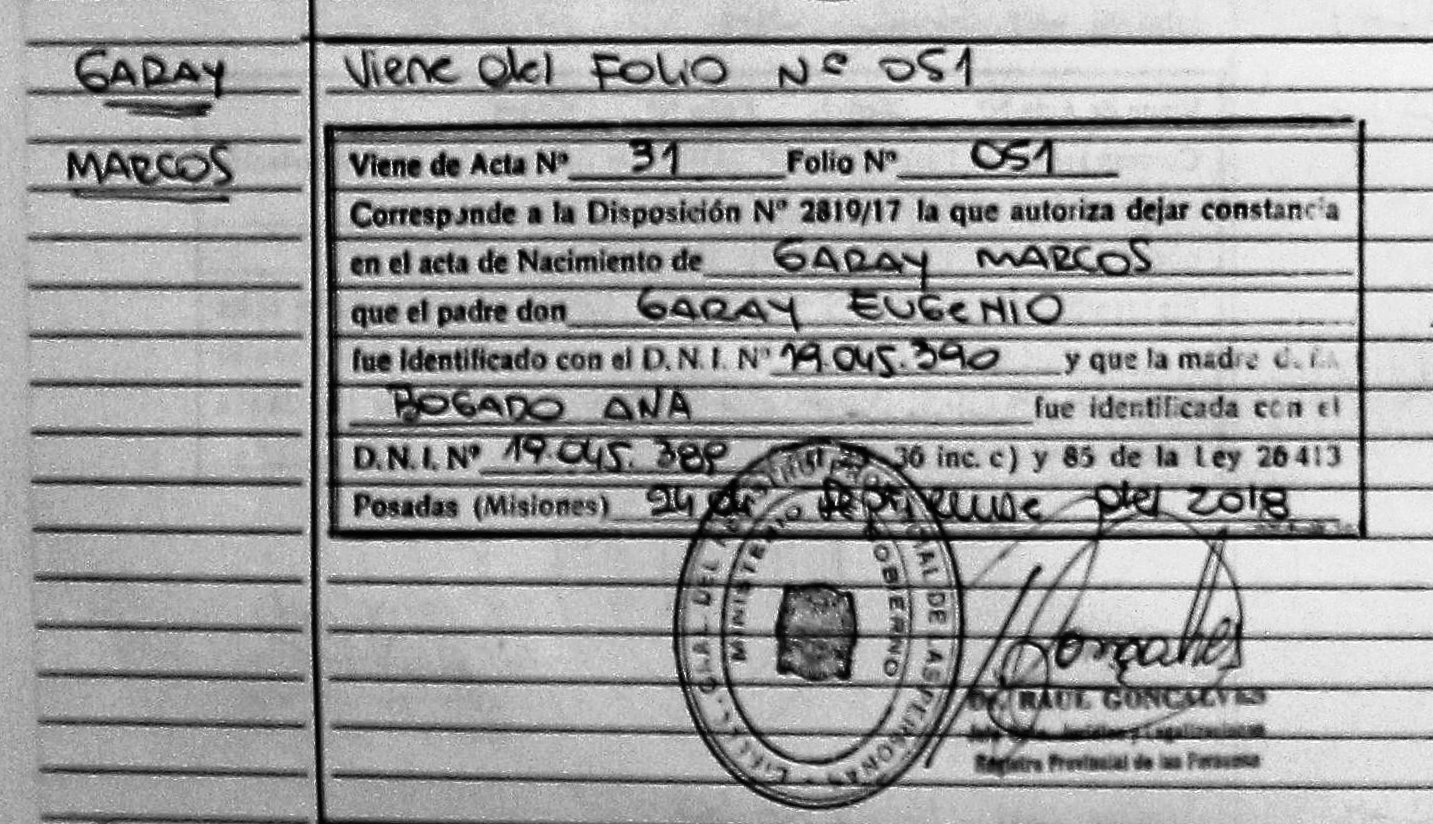 GARAY
MARCOS
Viene del FOLIO Nº 051
Viene de Acta Nº 31 Folio Nº 051
Corresponde a la Disposición Nº 2819/17 la que autoriza dejar constancia
en el acta de Nacimiento de GARAY MARCOS
que el padre don GARAY EUGENIO
fue identificado con el D.N.I. Nº 19.045.390 y que la madre
BOGADO ANA fue identificada con el
D.N.I. Nº 19.045.389 30 inc. c) y 85 de la Ley 26413
Posadas (Misiones) 24 de septiembre del 2018
PROVINCIAL DE LAS PERSONAS
MINISTERIO GOBIERNO
Gonçalves
Dr. RAUL GONCALVES
Registro Provincial de las Personas